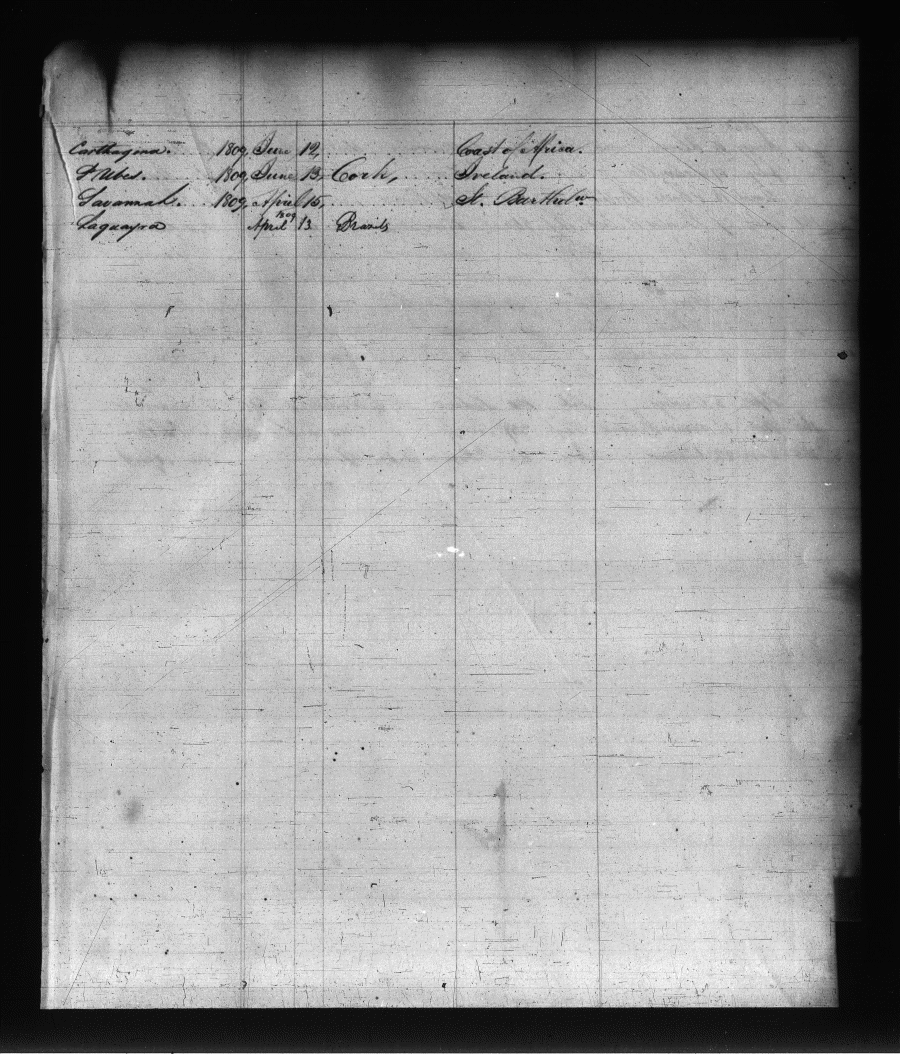 Carthagena. 1809, June 12, Coast of Africa.
St Ubes. 1809, June 13, Cork, Ireland.
Savannah. 1809, April 15, St. Barthol
Laguayra April 1809 13 Brazils